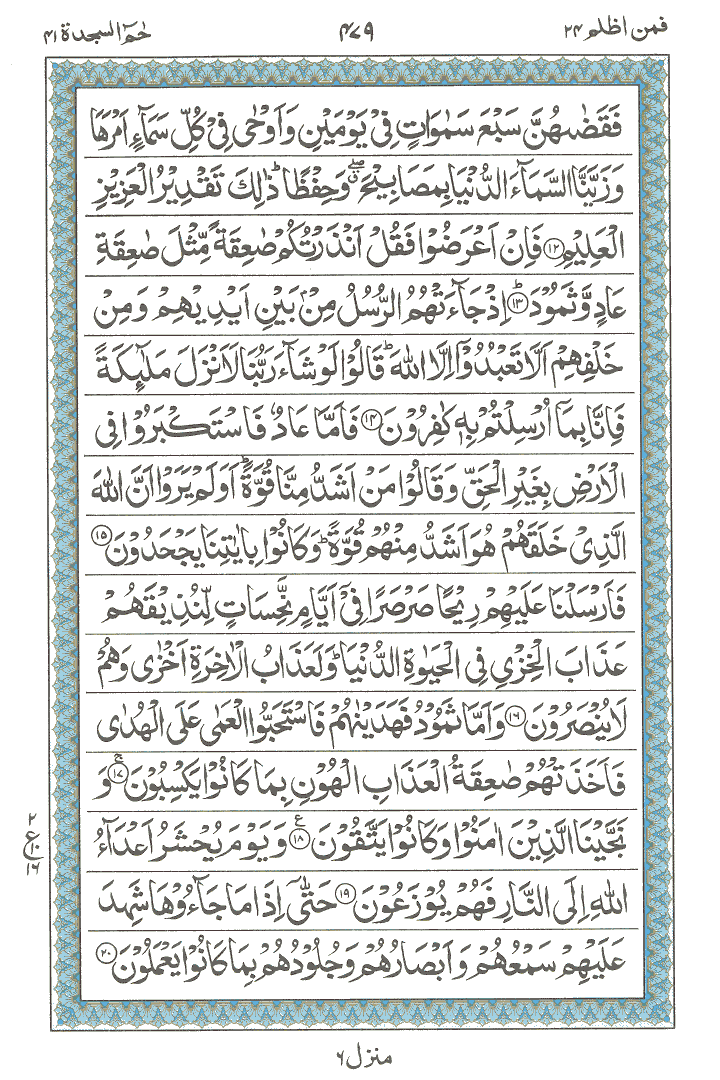 فمن اظلم ۲۴
۴۷۹
حٰم السجدة ۴۱
فَقَضٰىهُنَّ سَبْعَ سَمٰوَاتٍ فِىْ يَوْمَيْنِ وَاَوْحٰى فِىْ كُلِّ سَمَآءٍ اَمْرَهَا
وَزَيَّنَّا السَّمَآءَ الدُّنْيَا بِمَصَابِيْحَ ۖ وَحِفْظًا ؕ ذٰلِكَ تَقْدِيْرُ الْعَزِيْزِ
الْعَلِيْمِ ﴿۱۲﴾ فَاِنْ اَعْرَضُوْا فَقُلْ اَنْذَرْتُكُمْ صٰعِقَةً مِّثْلَ صٰعِقَةِ
عَادٍ وَّثَمُوْدَ ؕ﴿۱۳﴾ اِذْ جَآءَتْهُمُ الرُّسُلُ مِنْۢ بَيْنِ اَيْدِيْهِمْ وَمِنْ
خَلْفِهِمْ اَلَّا تَعْبُدُوْۤا اِلَّا اللّٰهَ ؕ قَالُوْا لَوْ شَآءَ رَبُّنَا لَاَنْزَلَ مَلٰٓئِكَةً
فَاِنَّا بِمَاۤ اُرْسِلْتُمْ بِهٖ كٰفِرُوْنَ ﴿۱۴﴾ فَاَمَّا عَادٌ فَاسْتَكْبَرُوْا فِى
الْاَرْضِ بِغَيْرِ الْحَقِّ وَقَالُوْا مَنْ اَشَدُّ مِنَّا قُوَّةً ؕ اَوَلَمْ يَرَوْا اَنَّ اللّٰهَ
الَّذِىْ خَلَقَهُمْ هُوَ اَشَدُّ مِنْهُمْ قُوَّةً ؕ وَكَانُوْا بِاٰيٰتِنَا يَجْحَدُوْنَ ﴿۱۵﴾
فَاَرْسَلْنَا عَلَيْهِمْ رِيْحًا صَرْصَرًا فِىْۤ اَيَّامٍ نَّحِسَاتٍ لِّنُذِيْقَهُمْ
عَذَابَ الْخِزْىِ فِى الْحَيٰوةِ الدُّنْيَا ؕ وَلَعَذَابُ الْاٰخِرَةِ اَخْزٰى وَهُمْ
لَا يُنْصَرُوْنَ ﴿۱۶﴾ وَاَمَّا ثَمُوْدُ فَهَدَيْنٰهُمْ فَاسْتَحَبُّوا الْعَمٰى عَلَى الْهُدٰى
فَاَخَذَتْهُمْ صٰعِقَةُ الْعَذَابِ الْهُوْنِ بِمَا كَانُوْا يَكْسِبُوْنَ ۚ﴿۱۷﴾ وَ
نَجَّيْنَا الَّذِيْنَ اٰمَنُوْا وَكَانُوْا يَتَّقُوْنَ ﴿۱۸﴾ ع وَيَوْمَ يُحْشَرُ اَعْدَآءُ
اللّٰهِ اِلَى النَّارِ فَهُمْ يُوْزَعُوْنَ ﴿۱۹﴾ حَتّٰۤى اِذَا مَا جَآءُوْهَا شَهِدَ
عَلَيْهِمْ سَمْعُهُمْ وَاَبْصَارُهُمْ وَجُلُوْدُهُمْ بِمَا كَانُوْا يَعْمَلُوْنَ ﴿۲۰﴾
۲
ع ۱۰
۱۶
منزل ۶